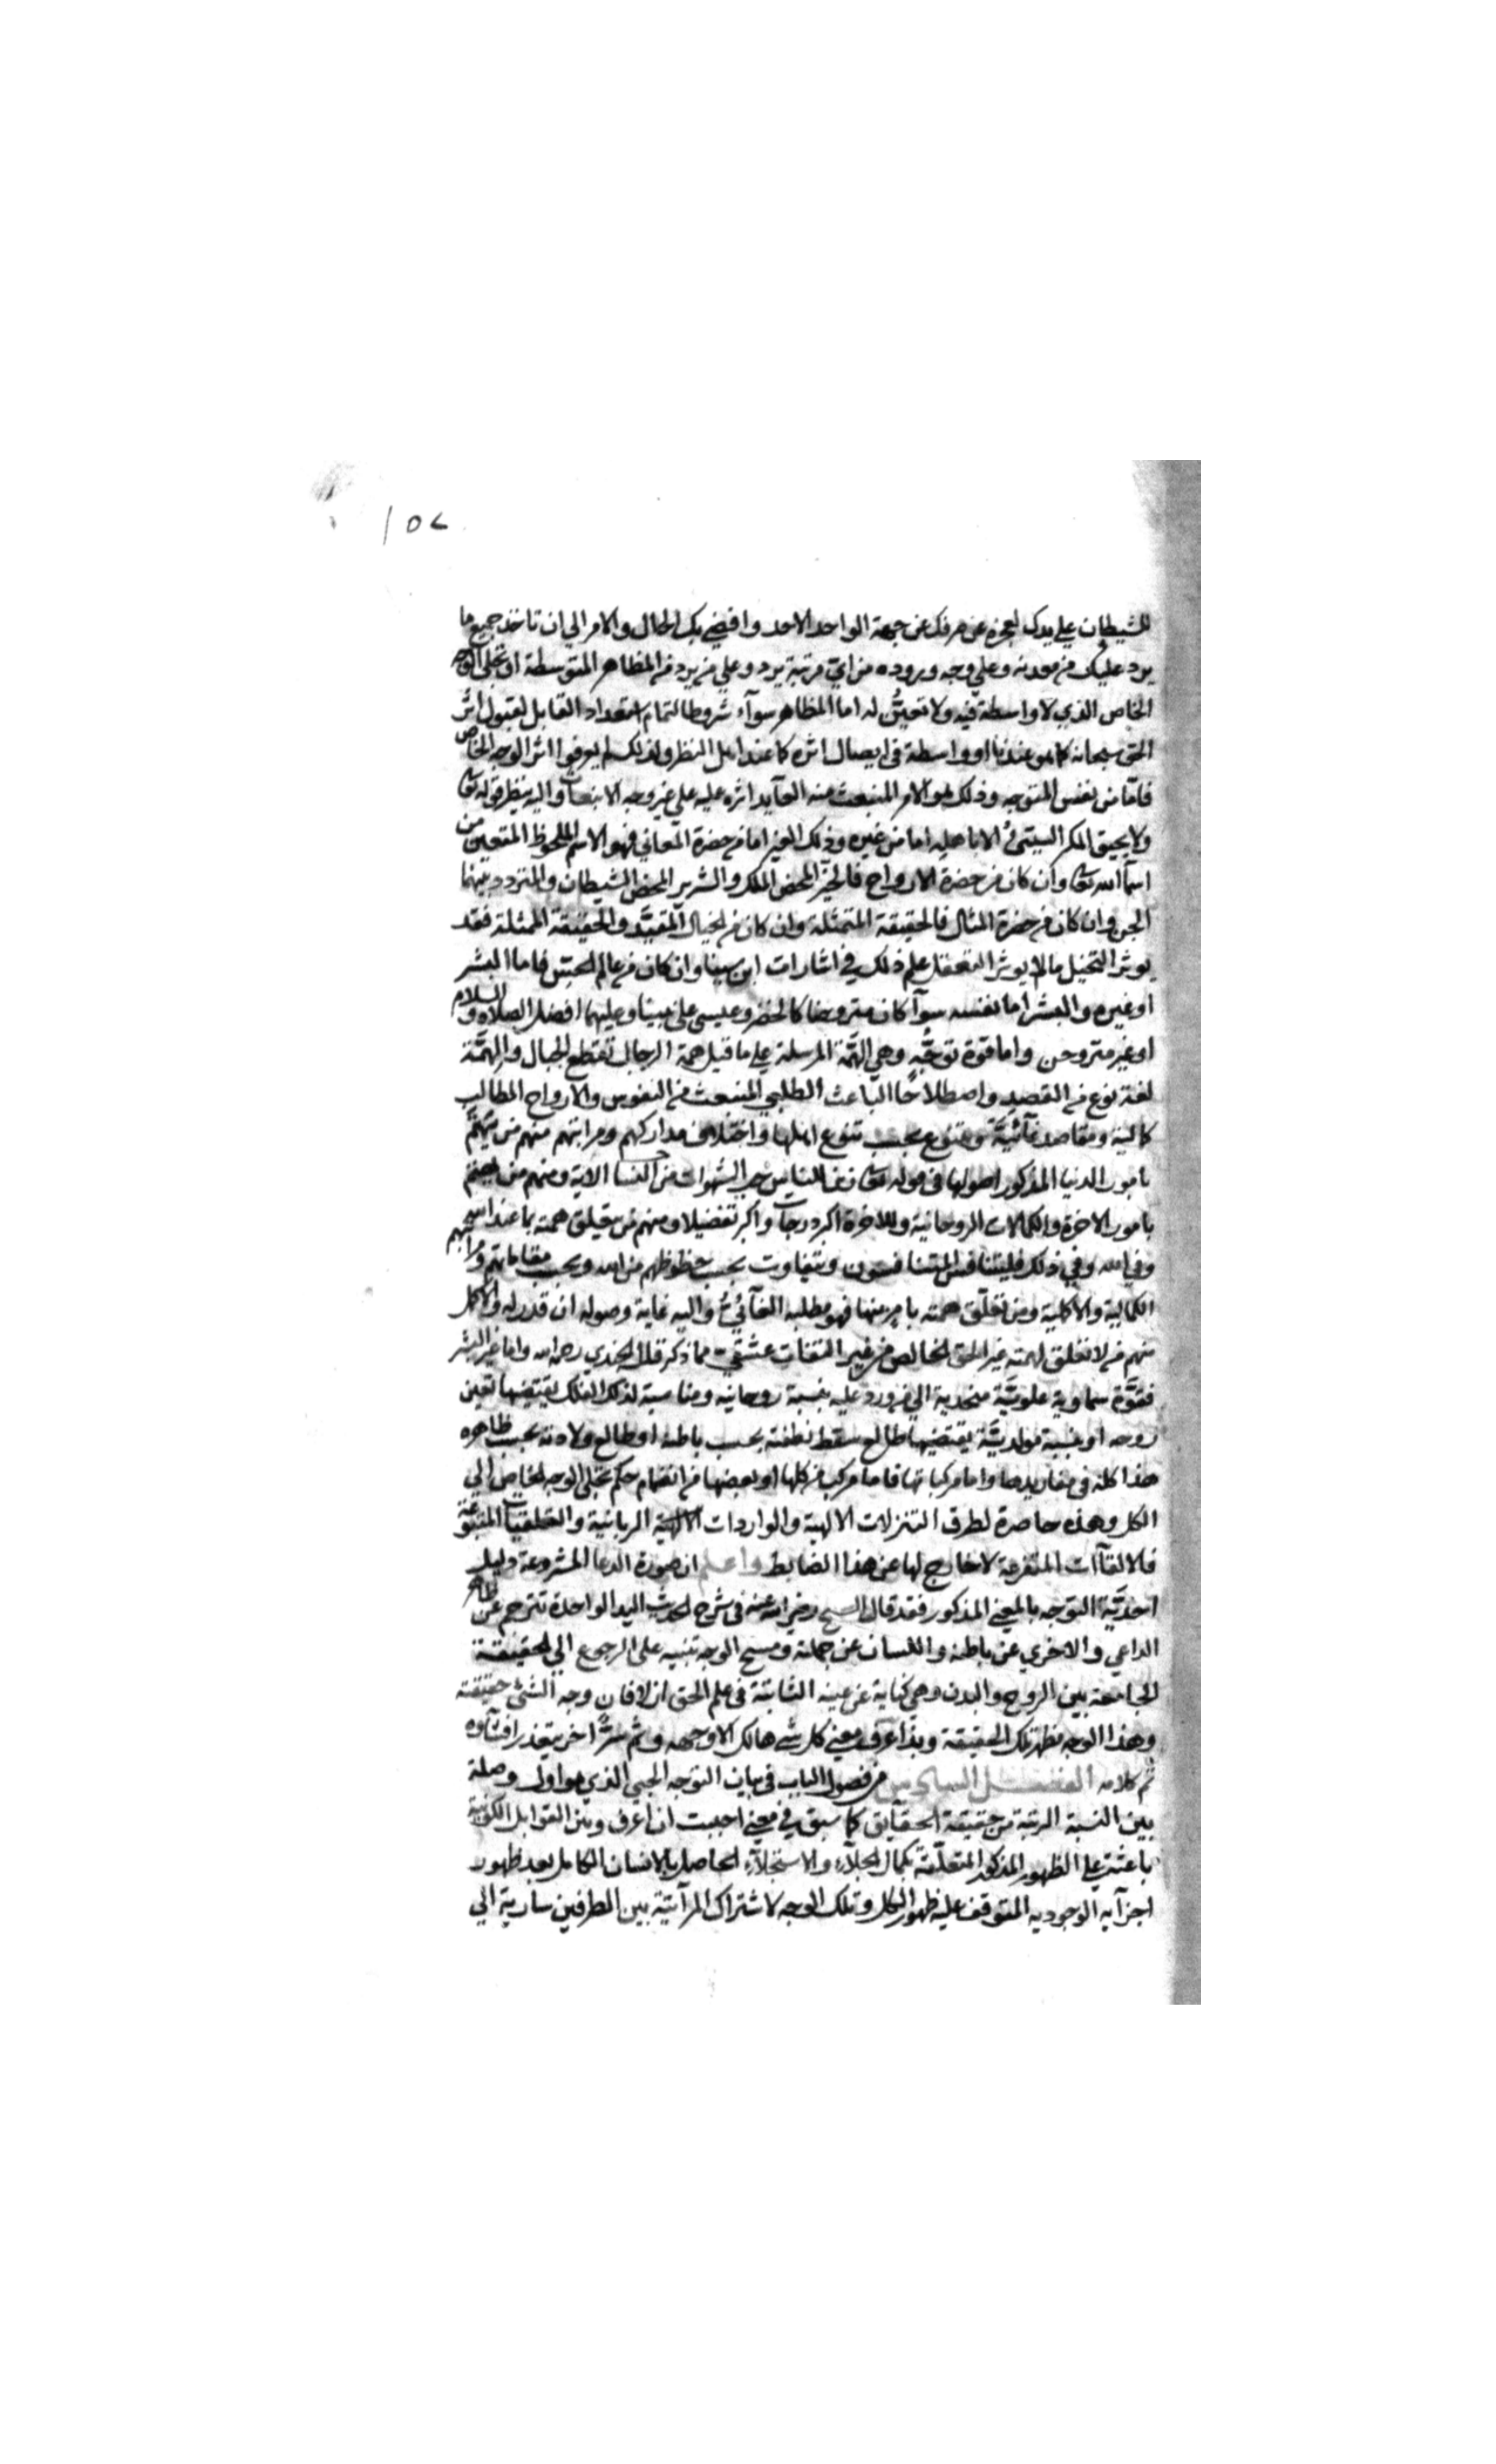 ١٥٢
الشيطان علي يدك لعجزه عن صرفك عن جهة الواحد الاحد وافضي بك الحال والامر الي ان تاخذ جميع ما
يرد عليك من معدنه وعلي وجه وروده من اي مرتبة يرد وعلي من يرد من المظاهر المتوسطة او تجلي الوجه
الخاص الذي لا واسطة فيه ولا تعين له اما المظاهر سوآء شروطا لتمام استعداد القابل لقبول اثر
الحق سبحانه كما هو عندنا او واسطة في ايصال اثره كما عند اهل النظر ولذلك لم يعرفوا اثر الوجه الخاص
فامّا من نفس المتوجه وذلك هو الامر المنبعث منه العآيد اثره عليه علي غير وجه الانبعاث واليه ينظر قوله تعالى
ولا يحيق المكر السيئ الا باهله اما من غيره وذلك الغير اما من حضرة المعاني فهو الاسم الملحوظ المتعين من
اسمآ الله تعالى وان كان من حضرة الارواح فالخيّر المحض الملك والشرير المحض الشيطان والمتردد بينهما
الجن وان كان من حضرة المثال فالحقيقة المتمثلة وان كان من الخيال المقيّد والحقيقة الممثلة فقد
يوثر التخيل ما لا يوثر التعقل علم ذلك في اشارات ابن سينا وان كان من عالم الحس فاما البشر
او غيره والبشر اما نفسه سوآ كان متروحنا كالخضر وعيسى على نبينا وعليهما افضل الصلاه والسلام
او غير متروحن واما قوّة توجّهٍ وهي الهمّة المرسلة علي ما قيل همة الرجال تقطع الجبال والهِمّة
لغة نوع من القصد واصطلاحًا الباعث الطلبي المنبعث من النفوس والارواح المطالب
كمالية ومقاصد غآئيّة وتتنوع بحسب تنوع اهلها واختلاف مداركهم ومراتبهم منهم من يهتمّ
بامور الدنيا المذكور اصولها في قوله تعالى زين للناس حب الشهوات من النسا الاية ومنهم من يهتم
بامور الاخرة والكمالات الروحانية وللاخرة اكبر درجات واكبر تفضيلا ومنهم من يتعلق همته بما عند الله
وفي الله وفي ذلك فليتنافس المتنافسون وتتفاوت بحسب حظوظهم من الله وبحسب مقاماتهم ومراتبهم
الكمالية والاكملية ومن تعلّق همته بامر منها فهو مطلبه الغآئيُّ واليه غاية وصوله ان قدر له والاكمل
منهم من لا تعلق لهمته غير الحق الخالص من غير التفات عشقي مما ذكر قال الجندي رحمه الله واما غير البشر
فقوّة سماوية علويّة منجذبة الي من ورد عليه بنسبة روحانية ومناسبة لذلك الفلك يقتضيها تعين
روحه او بنسبة مولديّة يقتضيها طالع سقط نطفته بحسب باطنه او طالع ولادته بحسب ظاهره
هذا كله في مفاريدها واما مركباتها فاما مركب من كلها او بعضها مع انضمام حكم تجلي الوجه الخاص الي
الكل وهذه حاصرة لطرق التنزلات الالهية والواردات الالهيّة الربانية والتلقيات المتنوعة
فالالقآات المتفرعة لا خارج لها عن هذا الضابط واعلم ان صورة الدعا المشروعة دليل
احديّة التوجه بالمعني المذكور فقد قال الشيخ رضي الله عنه في شرح الحديث اليد الواحدة تترجم عن ظاهر
الداعي والاخري عن باطنه واللسان عن جملته ومسح الوجه تنبيه على الرجوع الي الحقيقة
الجامعة بين الروح والبدن وهي كناية عن عينه الثابتة في علم الحق ازلا فان وجه الشئ حقيقته
وهذا الوجه مظهر تلك الحقيقة وبذا عرف معني كل شي هالك الا وجهه وثم سرًّا اخر يتعذر افشآوه
تم كلامه الفصل السادس من فصول الباب في بيان التوجه الحبي الذي هو اول وصلة
بين النسبة الرتبة من حقيقة الحقايق كما سبق في معني احببت ان اعرف وبين القوابل الكونية
باعثةً علي الظهور المذكور المتعلّقة بكمال الجلآء والاستجلآء الحاصل بالانسان الكامل بعد ظهور
اجزآيه الوجوديه المتوقف عليه ظهور الكل وتلك الوجه لاشتراك المرآتية بين الطرفين سارية الي